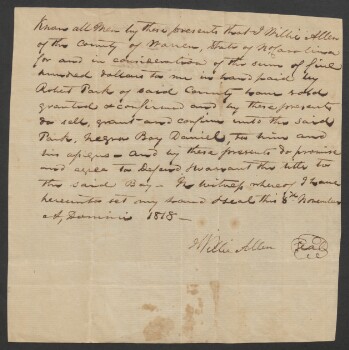 Know all Men by these presents that I Willie Allen
of the County of Warren, State of No Carolina
for and in consideration of the sum of five
hundred dollars to me in hand paid by
Robert Park of said County have sold
granted & confirmed and by these presents
do sell, grant and confirm unto the said
Park, Negroe Boy Daniel, to him and
his assigns - and by these presents do promise
and agree to defend warrant the title to
the said Boy - In witness whereof I have
hereunto set my hand & seal this 8th November
A, Domini 1818 -
Willie Allen Seal